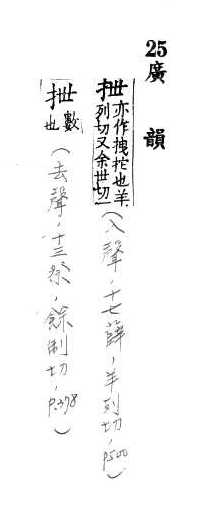 25廣韻
抴亦作拽拕也羊列切又余世切一(入聲,十七薛,羊列切,p.500)
抴數也(去聲,十三祭,餘制切,p.378)